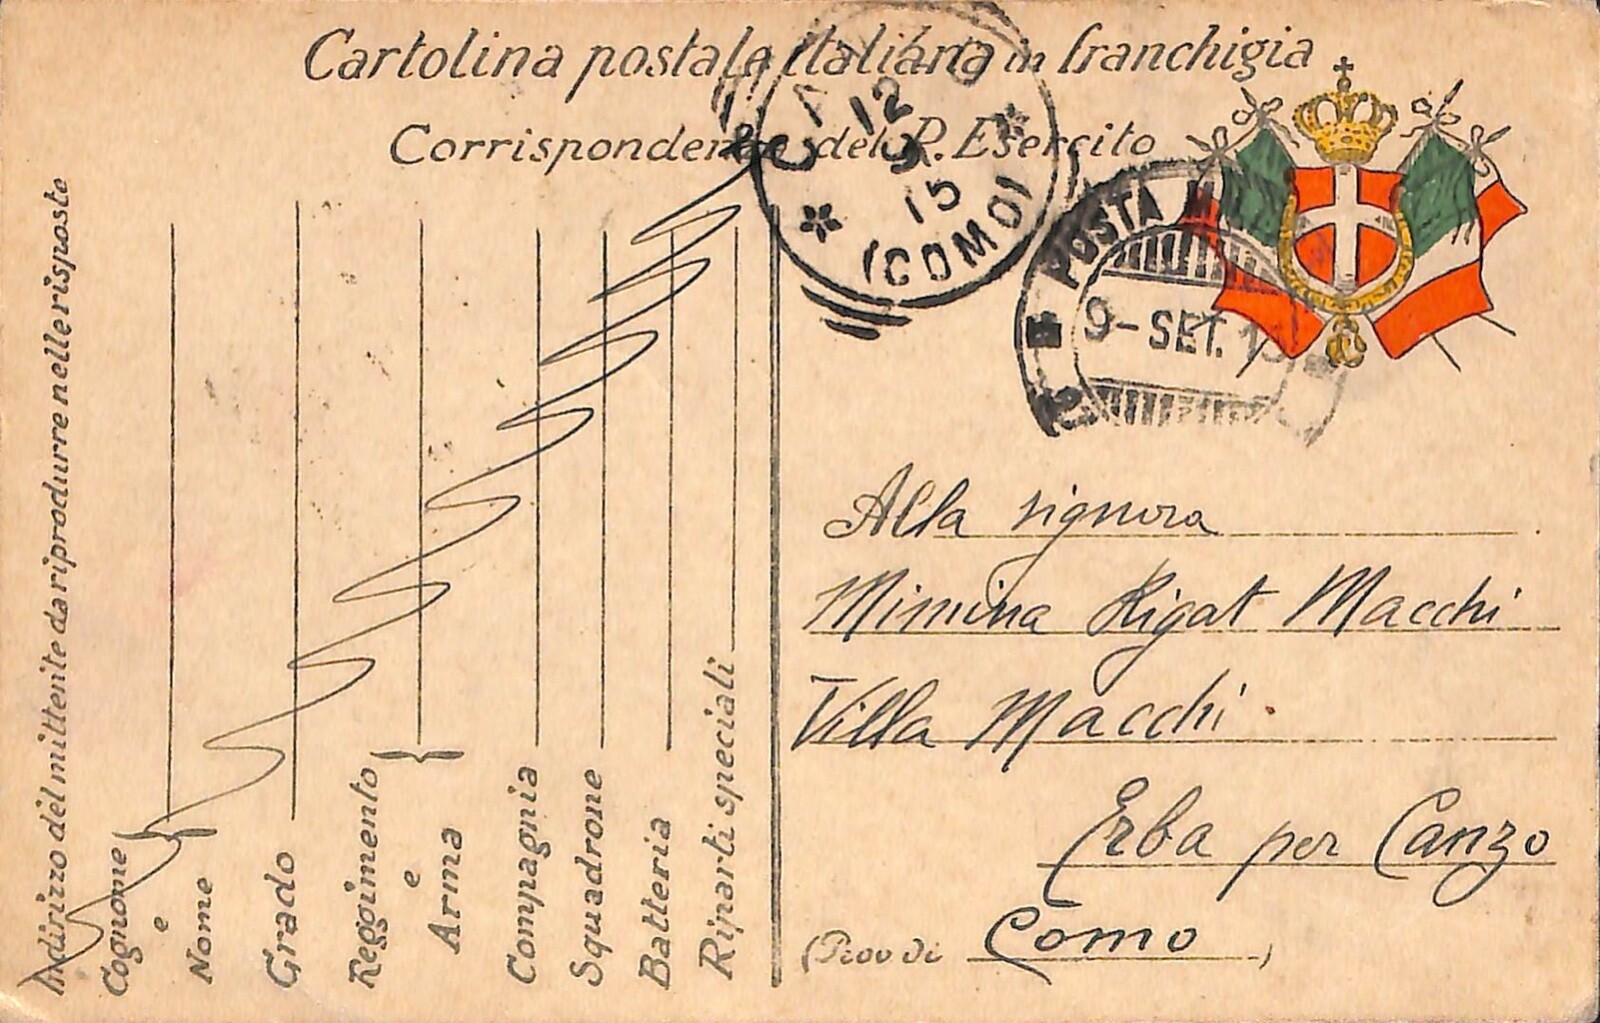 Cartolina postale italiana in franchigia
Corrispondenza del R. Esercito
12
9
15
(COMO)
POSTA M
9-SET. 15
Indirizzo del mittente da riprodurre nelle risposte
Cognome
e
Nome
Grado
Reggimento
e
Arma
Compagnia
Squadrone
Batteria
Riparti speciali
Alla signora
Mimina Rigat Macchi
Villa Macchi
Erba per Canzo
(Prov di Como)